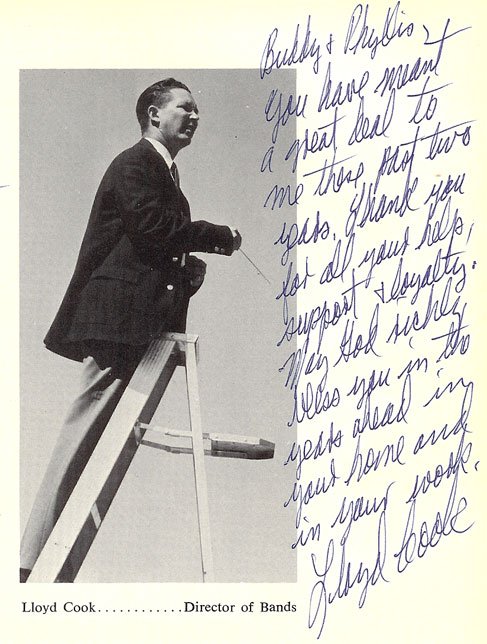 Buddy & Phyllis,
You have meant
a great deal to
me these past two
years. Thank you
for all your help,
support & loyalty.
May God richly
bless you in the
years ahead in
your home and
in your work.
Lloyd Cook
Lloyd Cook............Director of Bands